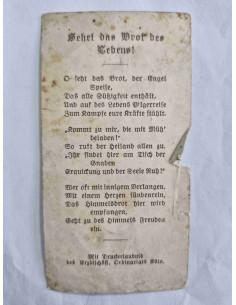 Sehet das Brot des
Lebens!
O seht das Brot, der Engel
Speise,
Das alle Süßigkeit enthält,
Und auf des Lebens Pilgerreise
Zum Kampfe eure Kräfte stählt.
„Kommt zu mir, die mit Müh'
beladen!“
So ruft der Heiland allen zu.
„Ihr findet hier am Tisch der
Gnaden
Erquickung und der Seele Ruh!“
Wer oft mit innigem Verlangen,
Mit einem Herzen sündenrein,
Das Himmelsbrot hier wird
empfangen,
Geht zu des Himmels Freuden
ein.
Mit Druckerlaubnis
des Erzbischöfl. Ordinariats Köln.